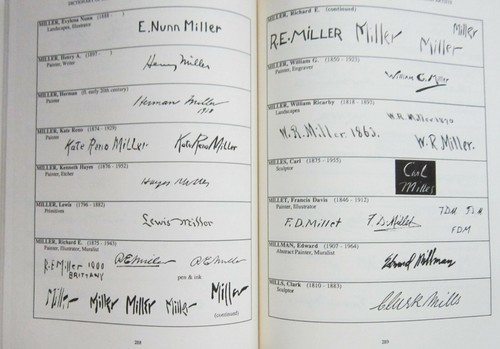 MILLER, Evylena Nunn (1888 -
Landscapes, Illustrator
E. Nunn Miller
MILLER, Henry A. (1897 -
Painter, Writer
Henry Miller
MILLER, Herman (fl. early 20th century)
Painter
Herman Miller
1918
MILLER, Kate Reno (1874 - 1929)
Painter
Kate Reno Miller
Kate Reno Miller
MILLER, Kenneth Hayes (1876 - 1952)
Painter, Etcher
Hayes Miller
MILLER, Lewis (1796 - 1882)
Primitives
Lewis Miller
MILLER, Richard E. (1875 - 1943)
Painter, Illustrator, Muralist
R.E Miller 1900
BRITTANY
R.E. Miller
R.E. Miller
pen & ink
Miller
Miller
Miller
Miller
Miller
(continued)
288
MILLER, Richard E. (continued)
R.E. MILLER
Miller
Miller
Miller
MILLER, William G.
Painter, Engraver
William G. Miller
MILLER, William Ricarby (1818 - 1893)
Landscapes
W.R. Miller 1863.
W.R. Miller 1870
W.R. Miller.
MILLES, Carl (1875 - 1955)
Sculptor
Carl
Milles
MILLET, Francis Davis (1846 - 1912)
Painter, Illustrator
F.D. Millet
F.D. Millet
F.D.M
MILLMAN, Edward (1907 - 1964)
Abstract Painter, Muralist
Edward Millman
MILLS, Clark (1810 - 1883)
Sculptor
Clark Mills
289